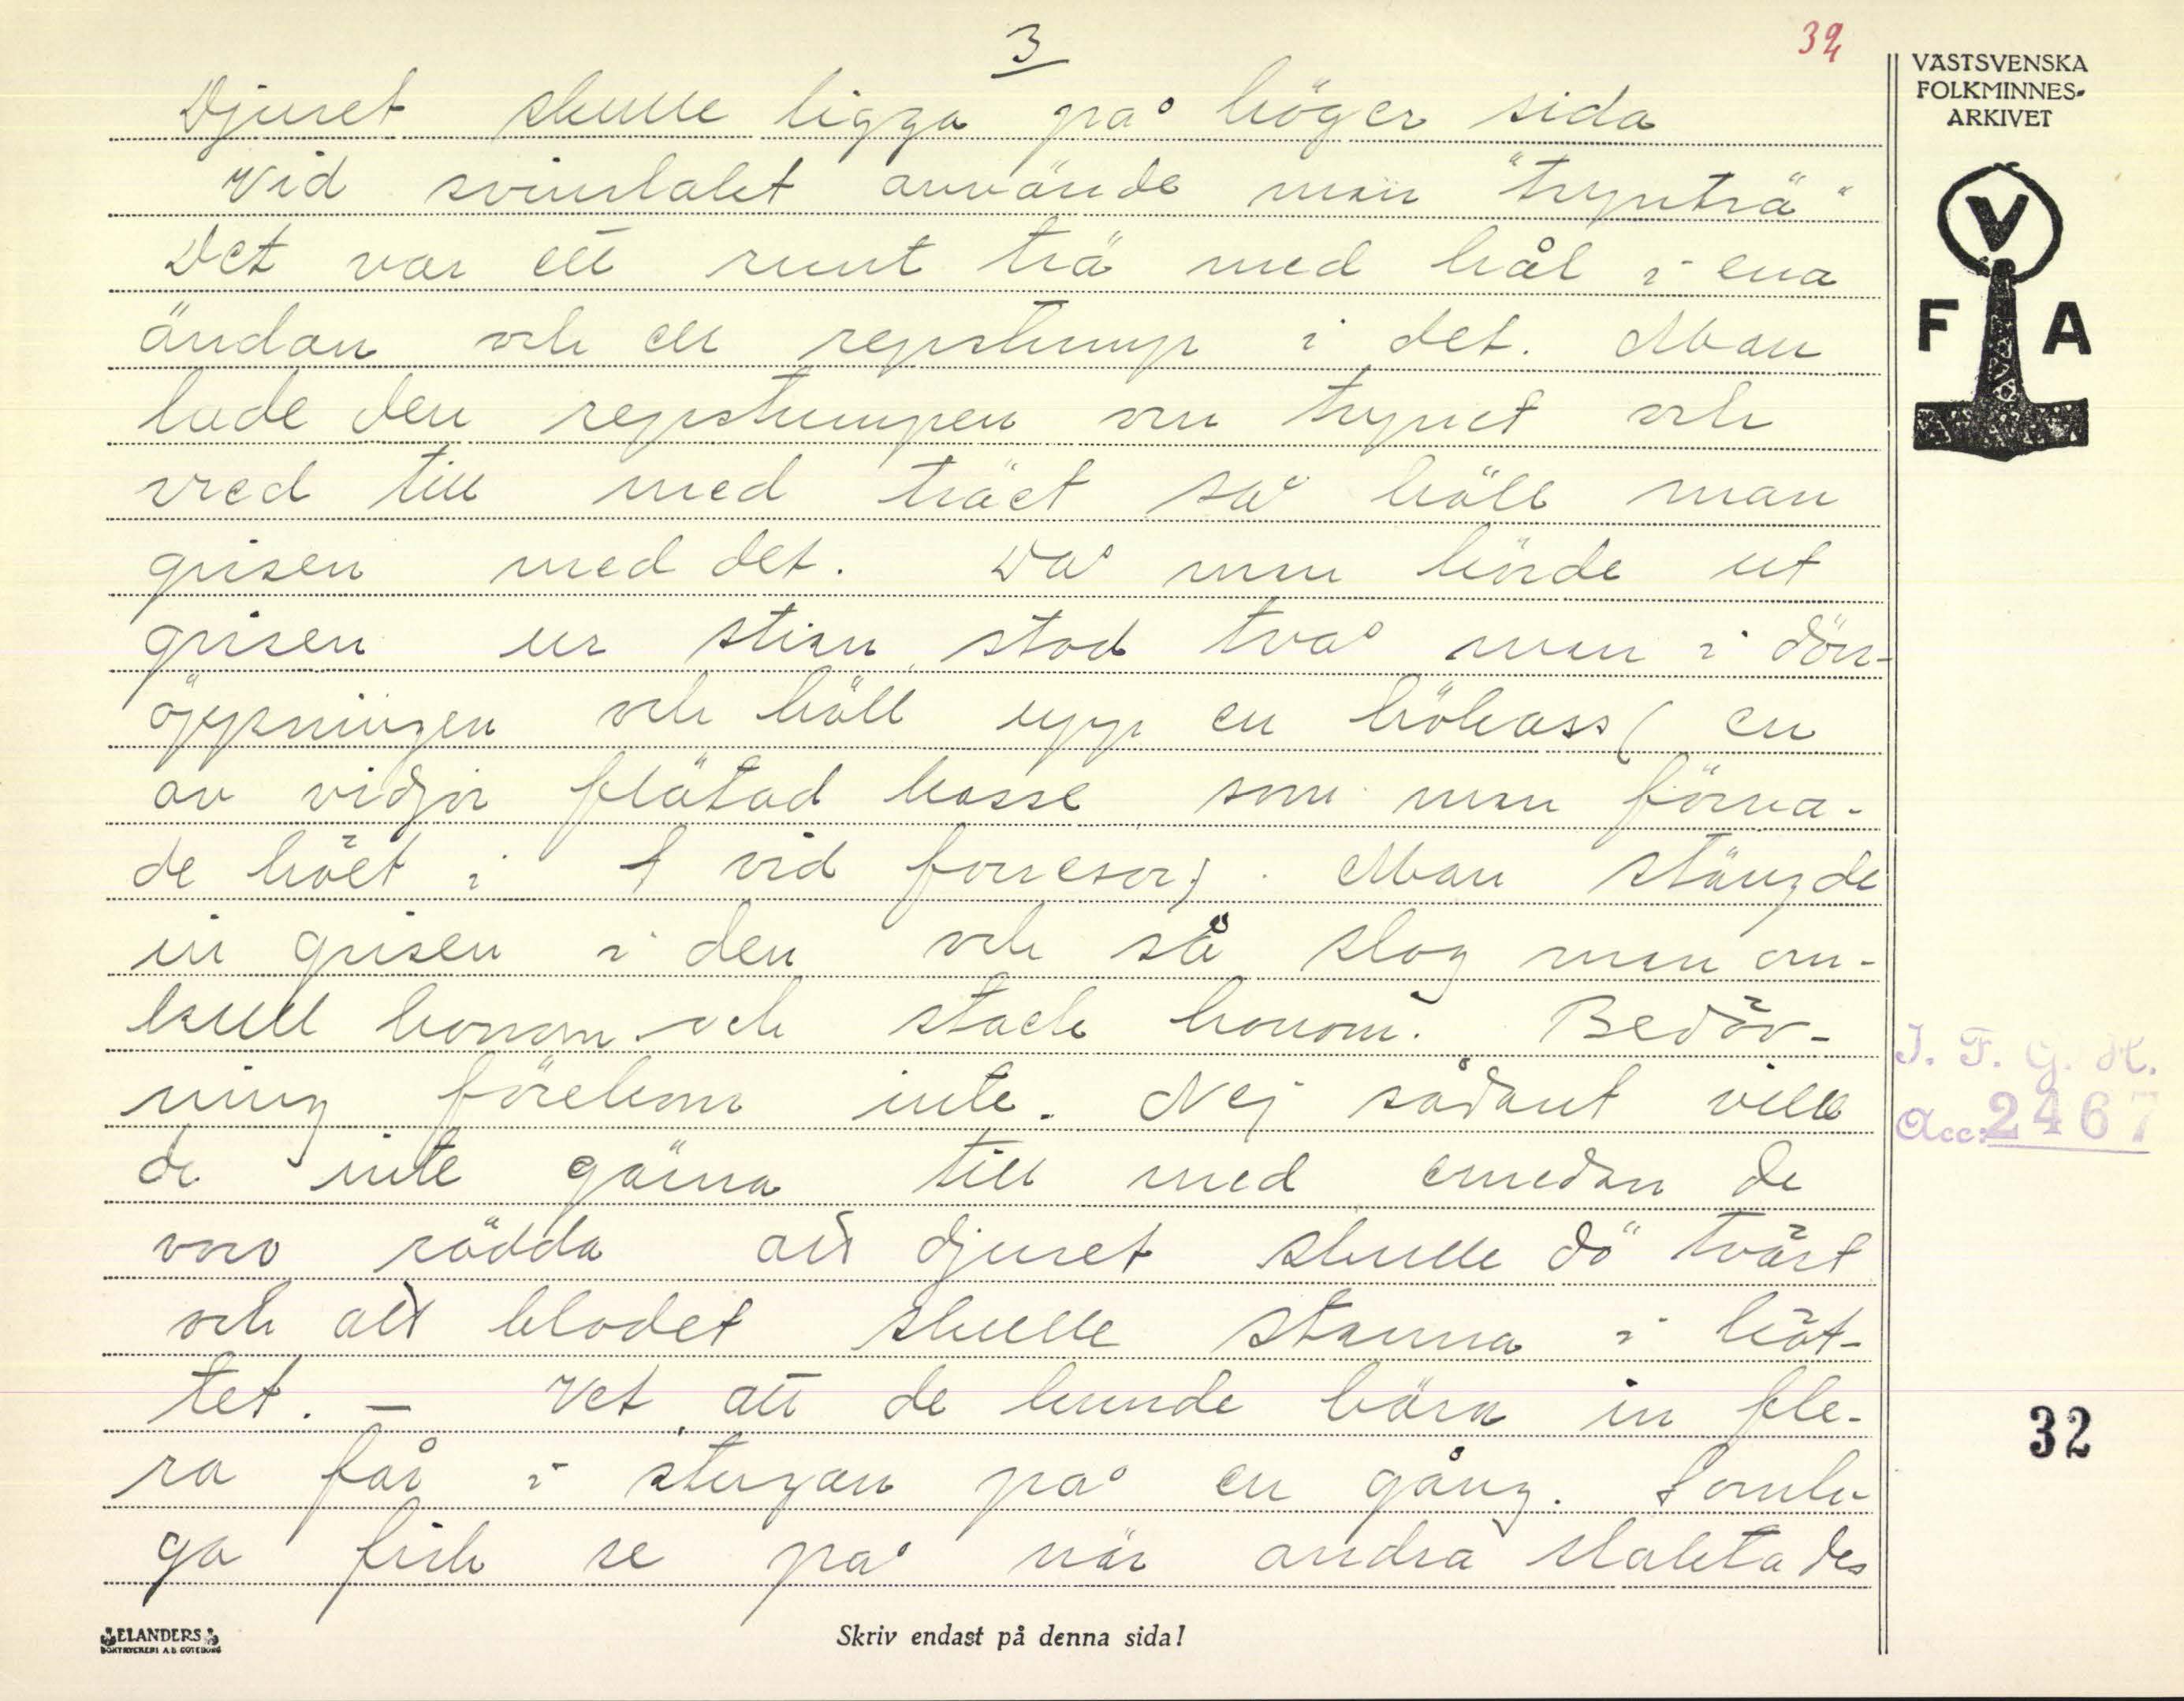 3
32
Djuret skulle ligga på höger sida
Vid svinslakt använde man "trynträ"
Det var ett runt trä med hål i ena
ändan och ett repstump i det. Man
lade den repstumpen om trynet och
vred till med träet så höll man
grisen med det. Då man körde ut
grisen ur stian stod två man i dörr-
öppningen och höll upp en hökass (en
av vidjor flätad kasse som man förva-
de höet i vid forresor). Man stängde
in grisen i den och så slog man om-
kull honom och stack honom. Bedöv-
ning förekom inte. Nej sådant ville
de inte gärna till med emedan de
voro rädda att djuret skulle dö tvärt
och att blodet skulle stanna i köt-
tet. – Vet att de kunde bära in fle-
ra får i stugan på en gång. Somli-
ga fick se på när andra slaktades
VÄSTSVENSKA
FOLKMINNES-
ARKIVET
V
F A
I. F. G. H.
Acc: 2467
32
ELANDERS
BOKTRYCKERI A.B. GÖTEBORG
Skriv endast på denna sida!